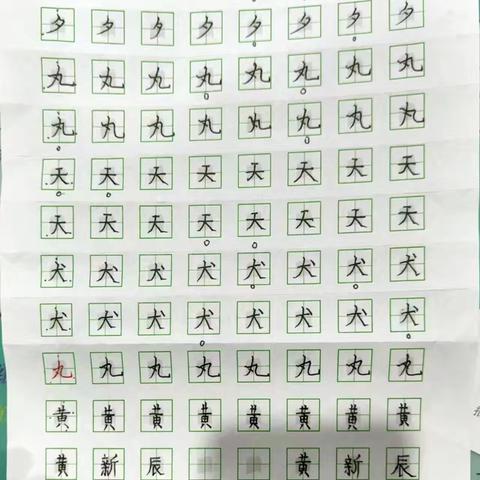 夕 夕 夕 夕 夕 夕 夕 夕
丸 丸 丸 丸 丸 丸 丸 丸
丸 丸 丸 丸 丸 丸 丸 丸
天 天 天 天 天 天 天 天
天 天 天 天 天 天 天 天
犬 犬 犬 犬 犬 犬 犬 犬
犬 犬 犬 犬 犬 犬 犬 犬
丸 丸 丸 丸 丸 丸 丸 丸
黄 黄 黄 黄 黄 黄 黄 黄
黄 新 辰 黄 新 辰